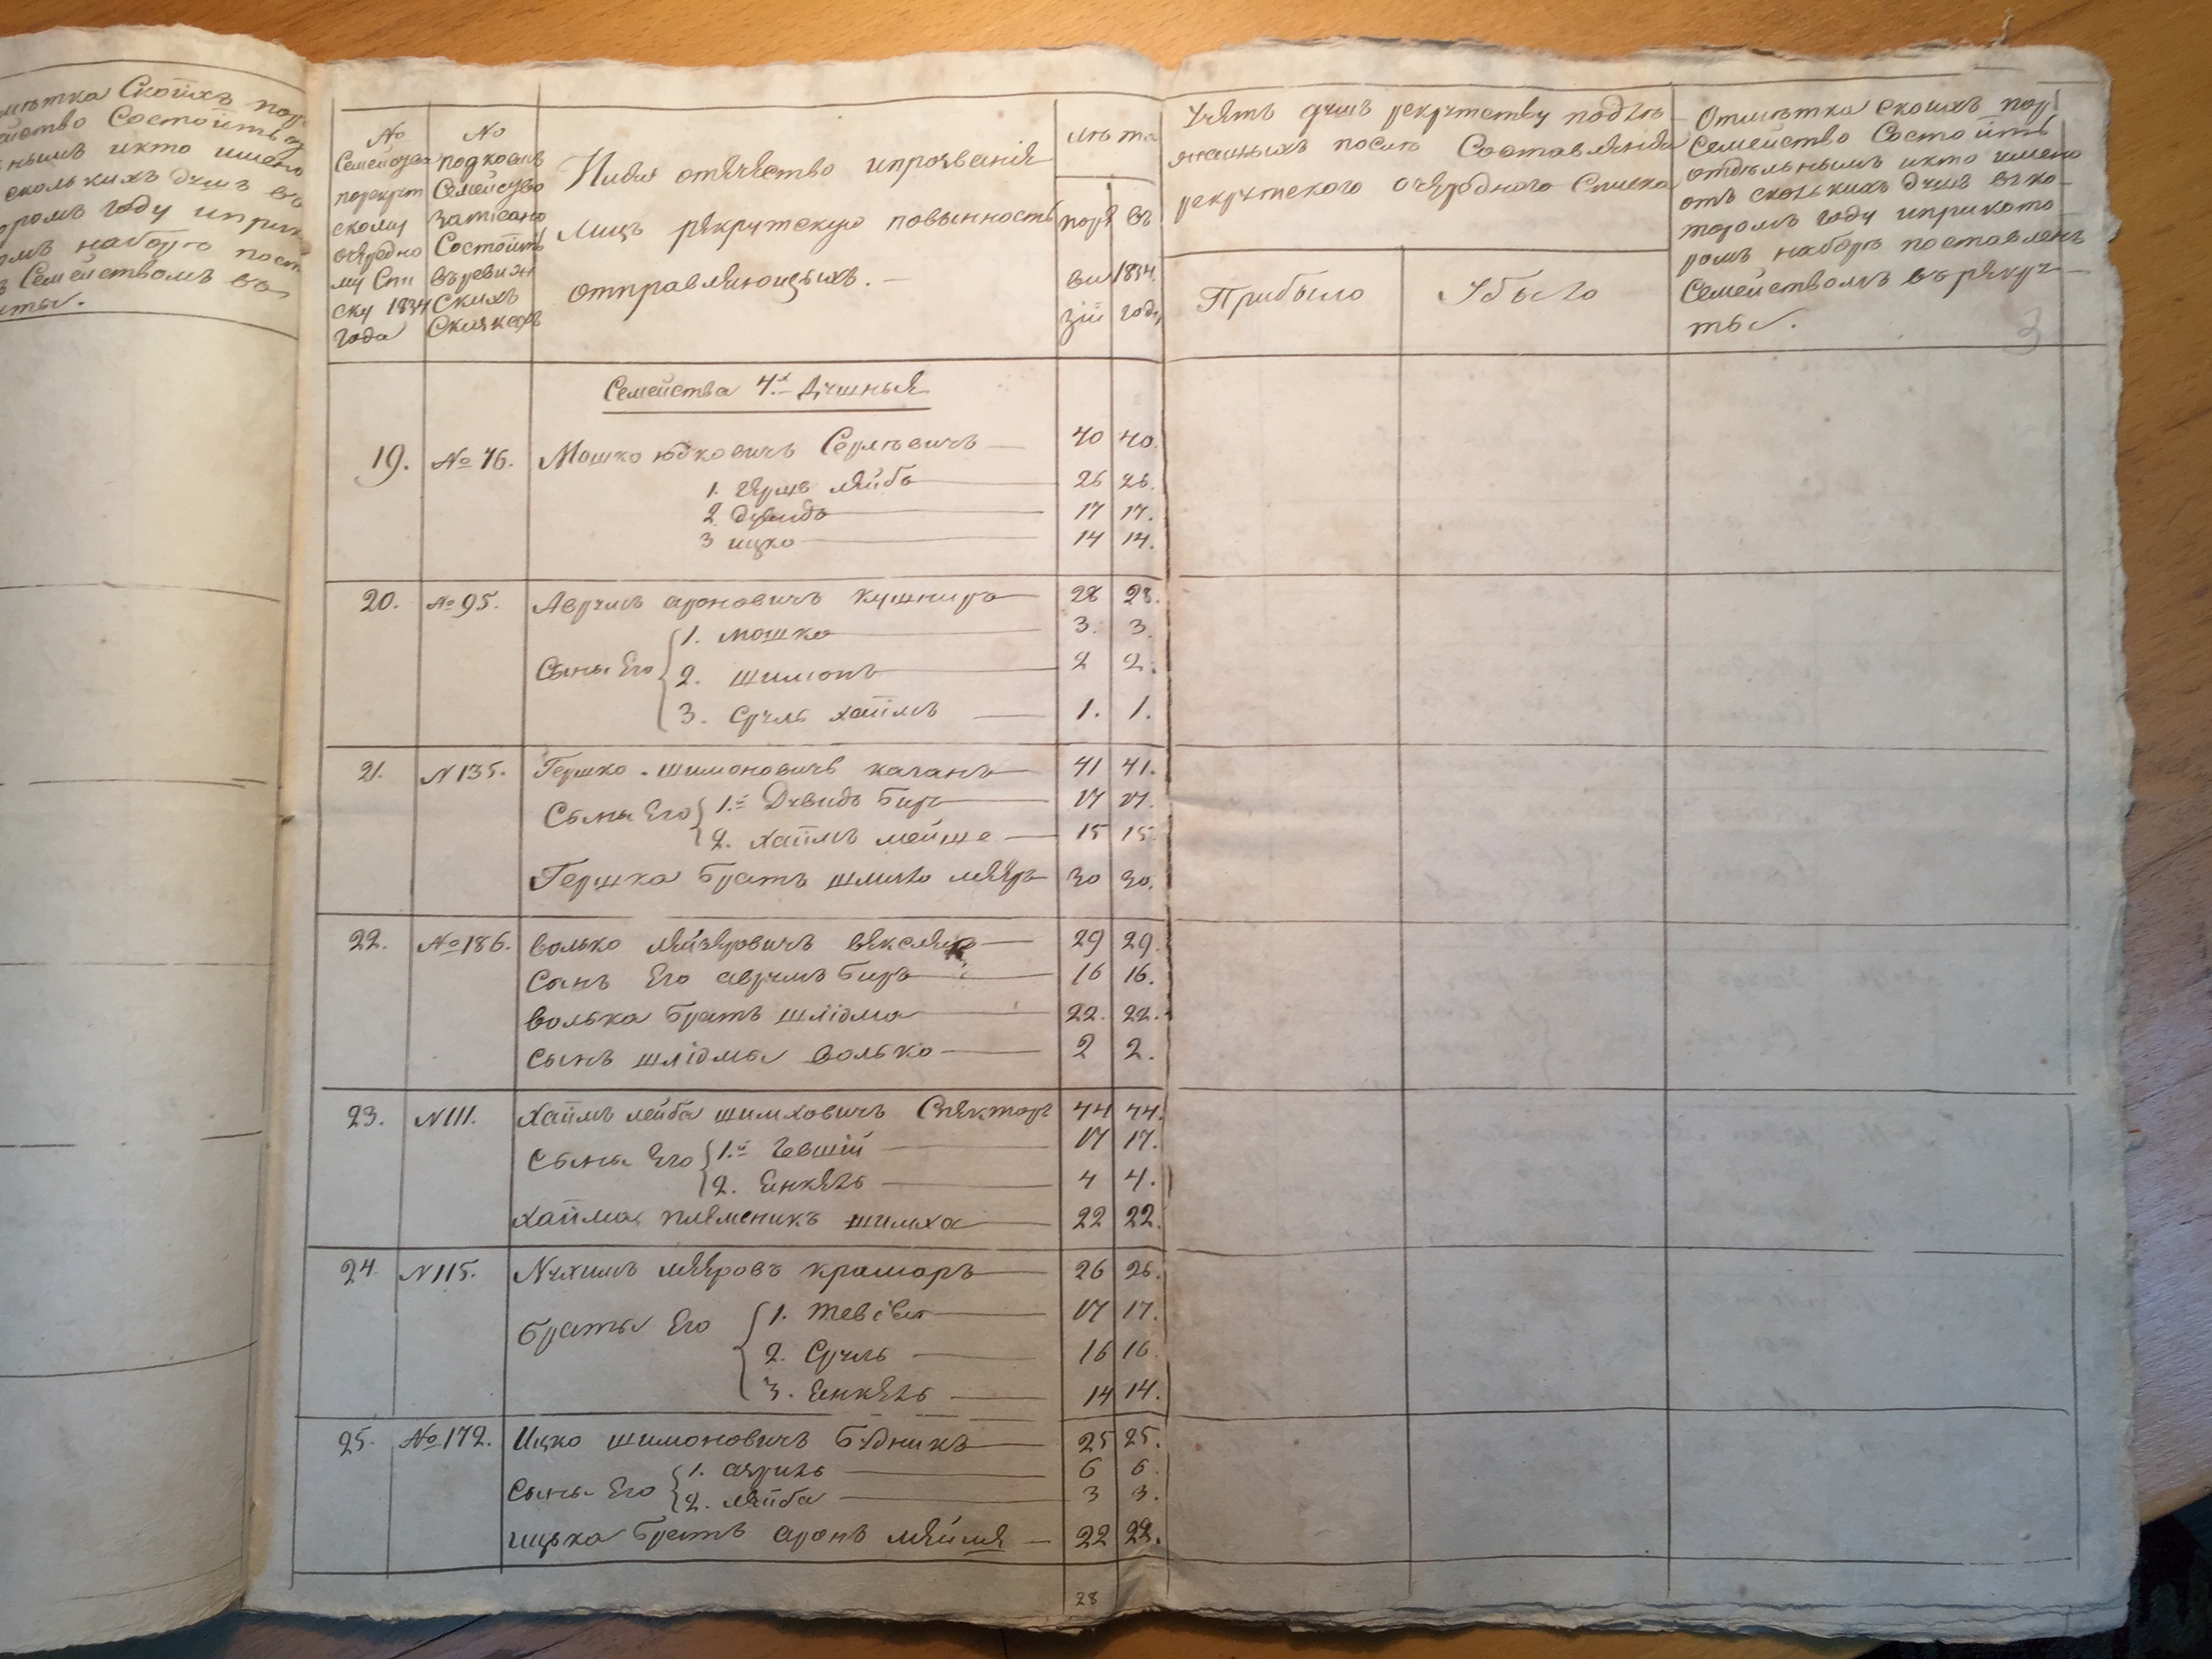 мѣтка Скоихъ пор
ейство Состоитъ
нымъ икто имено
сколькихъ душъ въ
оромъ году ипри
омъ наборѣ пост
Семействомъ въ
рты.
№ Семейства порекрутскому очередному Списку 1834 года
№ подкоимъ Семейство записано Состоитъ въревизскихъ Сказкахъ
Имяя отечество ипрозваніе
лицъ рекрутскую повынность
отправляющихъ. —
лѣта
поревизіи
въ 1834. году
Счетъ душъ рекрутству подле-
жащихъ послѣ Составленія
рекрутского очередного Списка
Прибыло
Убыло
Отмѣтка Скоихъ пор
Семейство Состоитъ
отдѣльнымъ икто имено
отъ сколькихъ душъ въко-
торомъ году ипрікото
ромъ наборѣ поставленъ
Семействомъ върекру-
ты.
3
Семейства 4х Душныя
19. №76. Мошко юдковичъ Серлевичъ 40 40.
1. Гершъ лейба 26 26.
2 Дувидъ 17 17.
3 ицко 14 14.
20. №95. Аврумъ ароновичъ кушниръ 28 28.
Сыны Его
1. мошко 3. 3.
2. шимонъ 2 2.
3. Сруль хаимъ 1. 1.
21. N135. Гершко шимоновичъ каганъ 41 41.
Сыны Его
1.й Дувидъ Беръ 17 17.
2. хаимъ мейше 15 15.
Гершка братъ шмилко мееръ 30 30.
22. №186. волько лейзеровичъ векслеръ 29 29.
Сынъ Его аврумъ Беръ 16 16.
волька братъ шліома 22. 22.
Сынъ шліомы волько 2 2.
23. N111. Хаимъ лейба шимховичъ Спекторъ 44 44.
Сыны Его
1.й Гевшій 17 17.
2. Енкель 4 4.
хаима племеникъ шимха 22 22.
24. N115. Нухимъ мееровъ крамаръ 26 26.
братья Его
1. 17 17.
2. Сруль 16 16
3. Енкель 14 14.
25. №172. Ицко шимоновичъ Будникъ 25 25.
Сыны Его
1. 6 6.
2. лейба 3 3.
ицька братъ аронъ 22 22.
28